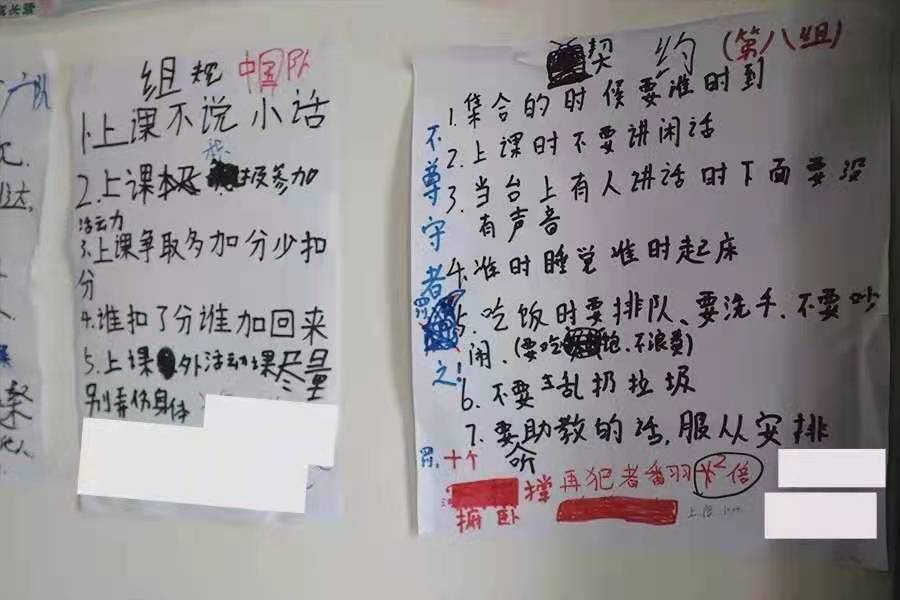 长
队
组规 中国队
1.上课不说小话
2.上课积极参加
活动
3.上课争取多加分少扣
分
4.谁扣了分谁加回来
5.上课外活动课尽量
别弄伤身体
契约(第八组)
1.集合的时候要准时到
2.上课时不要讲闲话
3.当台上有人讲话时下面要没
有声音
4.准时睡觉准时起床
5.吃饭时要排队、要洗手、不要吵
闹、(要吃饱、不浪费)
6.不要乱扔垃圾
7.要听助教的话,服从安排
不尊守者罚之!
罚、十个
撑 再犯者番羽 x2倍
俯卧